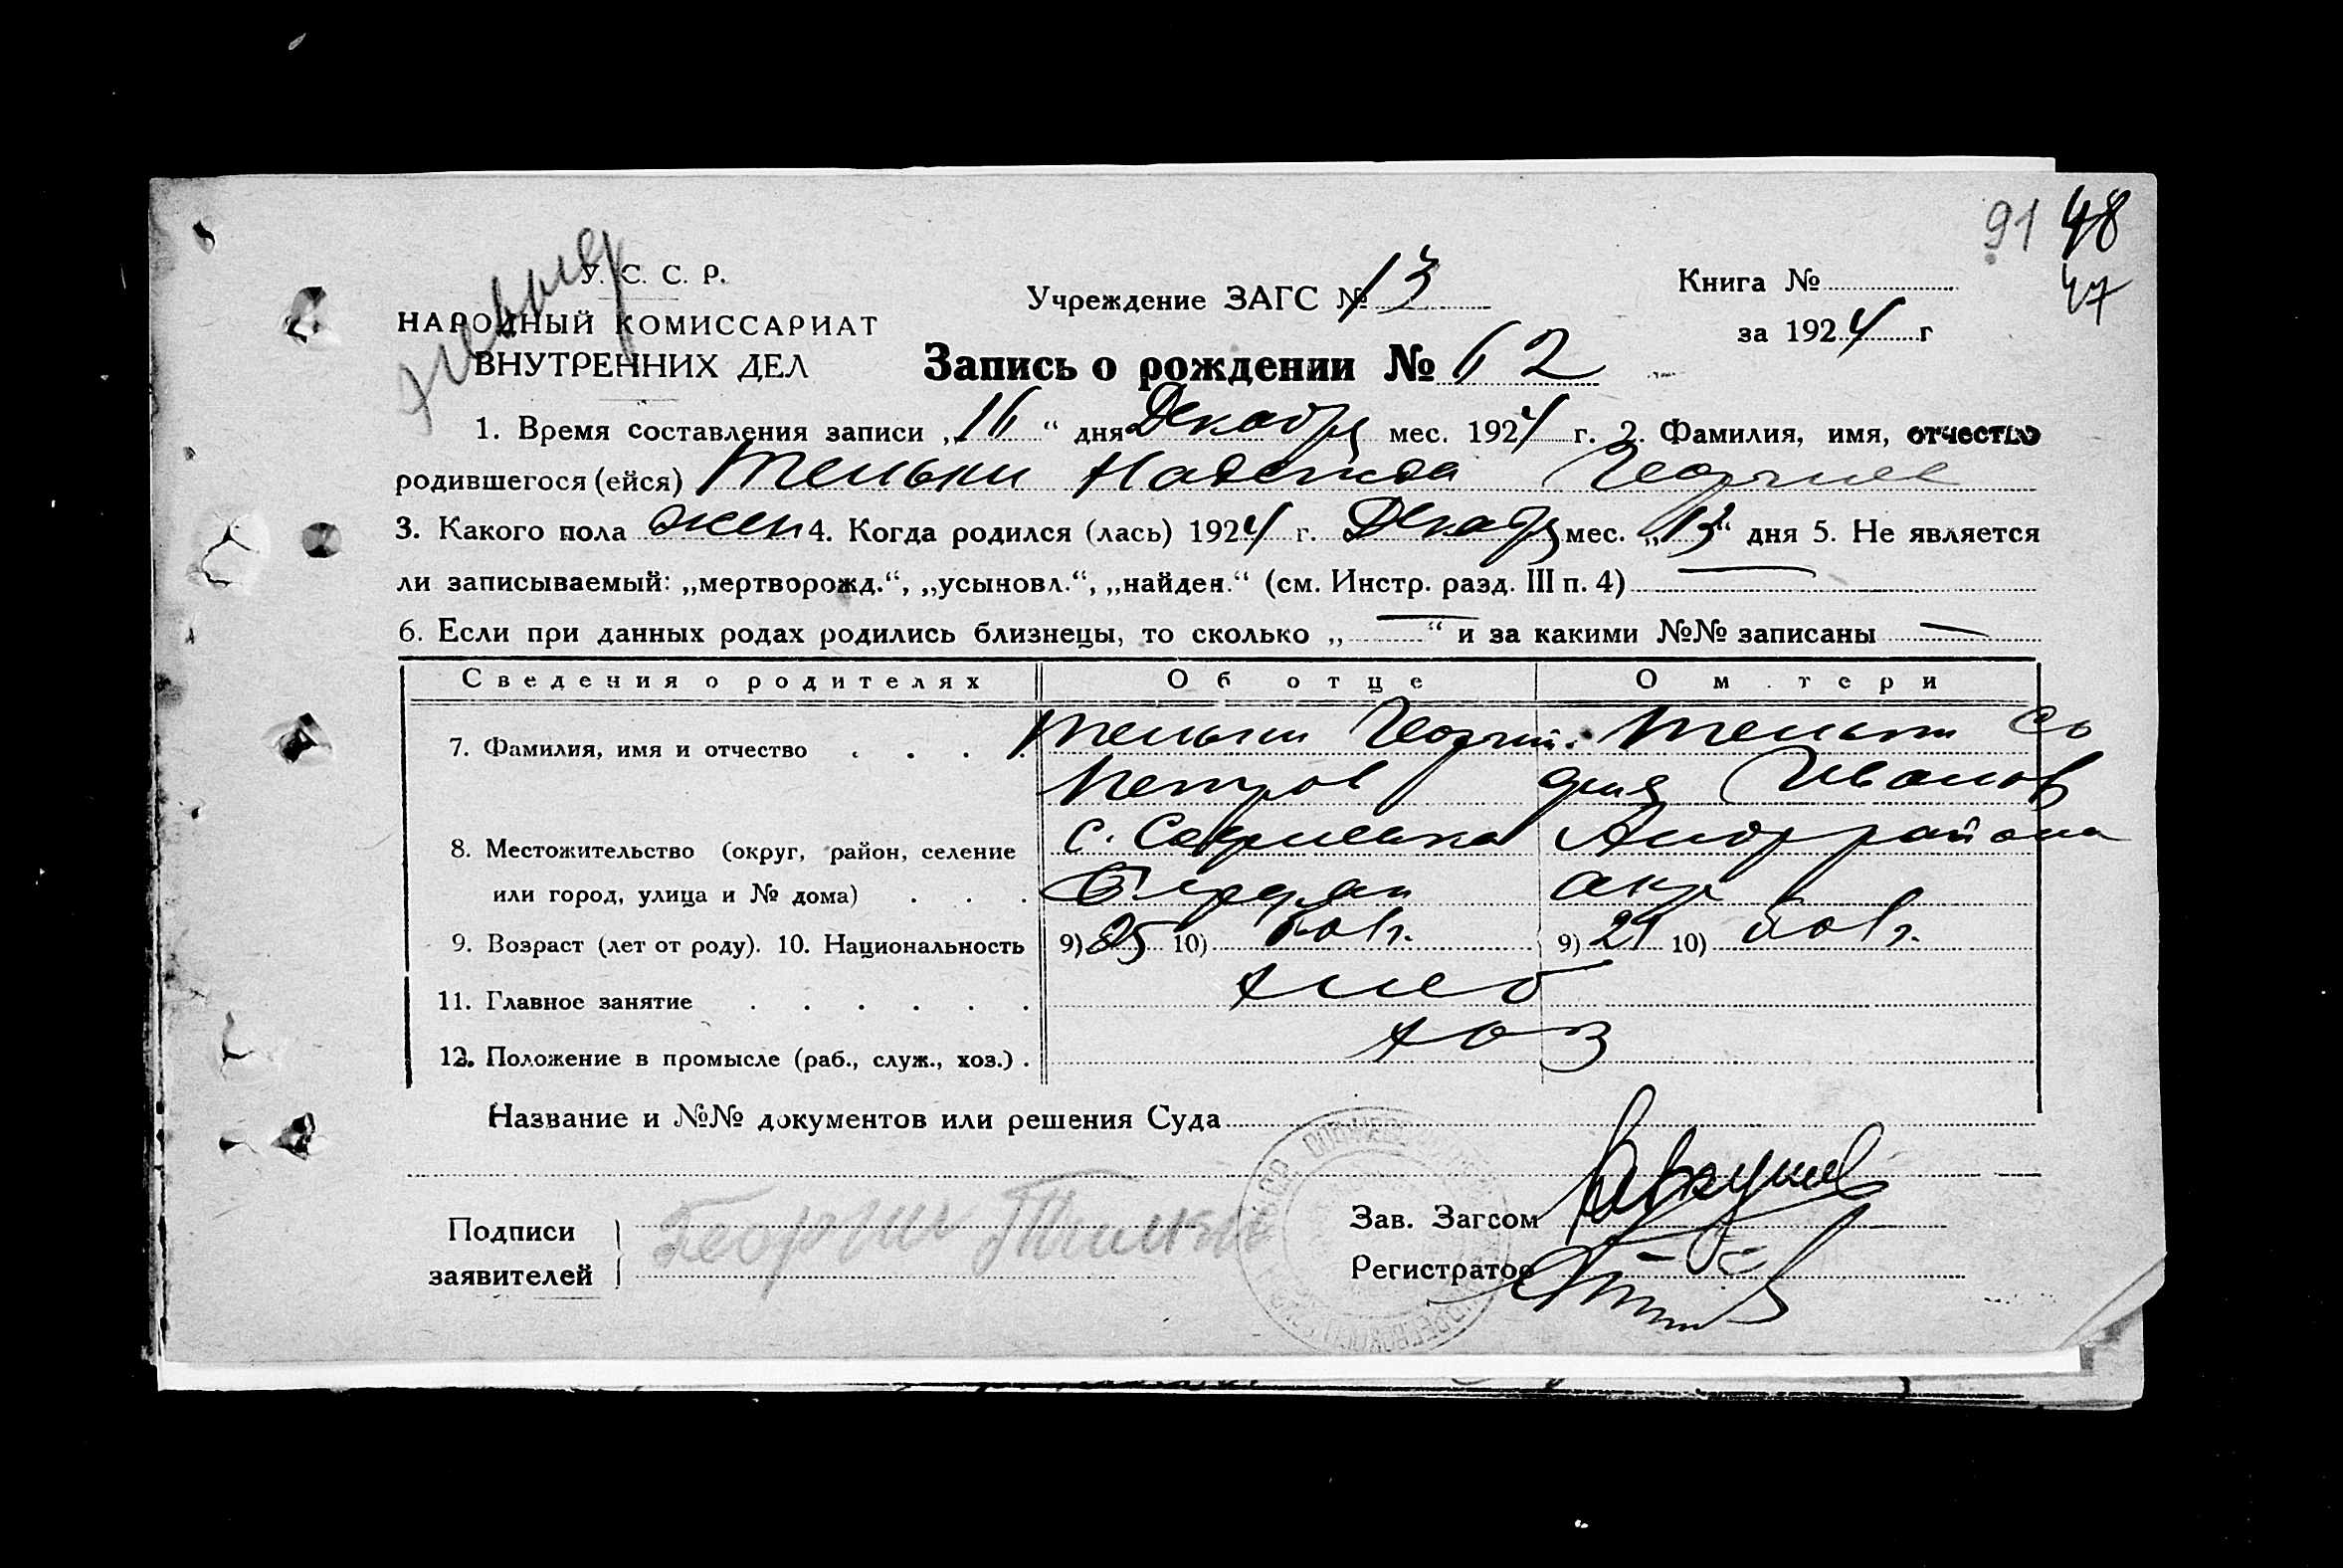 91 48
47
У. С. С. Р.
НАРОДНЫЙ КОМИССАРИАТ
ВНУТРЕННИХ ДЕЛ
Учреждение ЗАГС № 13
Книга №
за 1924 г
Запись о рождении № 62
1. Время составления записи „16“ дня Декабря мес. 1924 г. 2. Фамилия, имя, отчество
родившегося (ейся) Надежда
3. Какого пола жен 4. Когда родился (лась) 1924 г. Декабря мес. „13“ дня 5. Не является
ли записываемый: „мертворожд.“, „усыновл.“, „найден.“ (см. Инстр. разд. III п. 4) —
6. Если при данных родах родились близнецы, то сколько „—“ и за какими №№ записаны —
Сведения о родителях Об отце О м.тери
7. Фамилия, имя и отчество Георгий
Петров Иванов
8. Местожительство (округ, район, селение с. района
или город, улица и № дома) окр
9. Возраст (лет от роду). 10. Национальность 9) 25 10) болг. 9) 21 10) болг.
11. Главное занятие хлеб
12. Положение в промысле (раб., служ., хоз.) хоз
Название и №№ документов или решения Суда
Подписи
заявителей
Георгий
Зав. Загсом
Регистратор